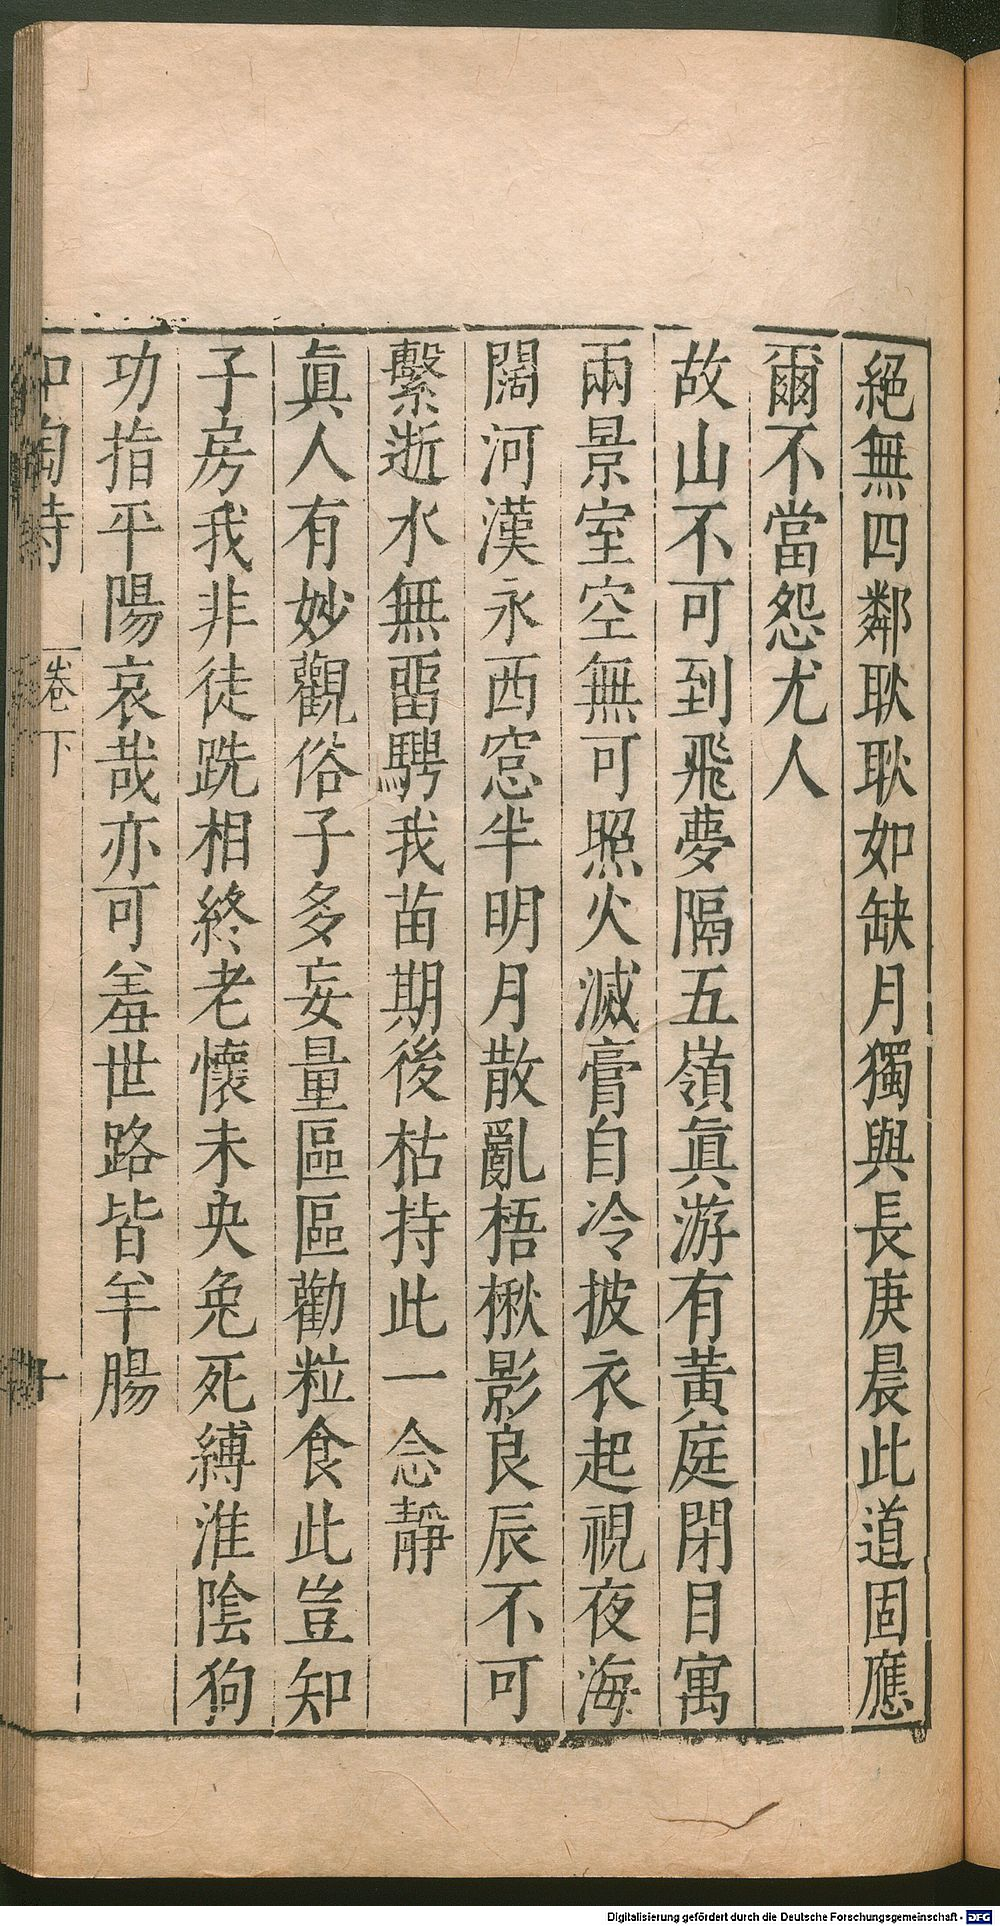 絕無四鄰耿耿如缺月獨與長庚晨此道固應
爾不當怨尤人
故山不可到飛夢隔五嶺眞游有黃庭閉目寓
兩景室空無可照火滅膏自冷披衣起視夜海
闊河漢永西窓半明月散亂梧楸影良辰不可
繫逝水無畱騁我苗期後枯持此一念靜
眞人有妙觀俗子多妄量區區勸粒食此豈知
子房我非徒跣相終老懷未央兔死縛淮陰狗
功指平陽哀哉亦可羞世路皆羊腸
和陶詩 卷下 十
Digitalisierung gefördert durch die Deutsche Forschungsgemeinschaft - DFG